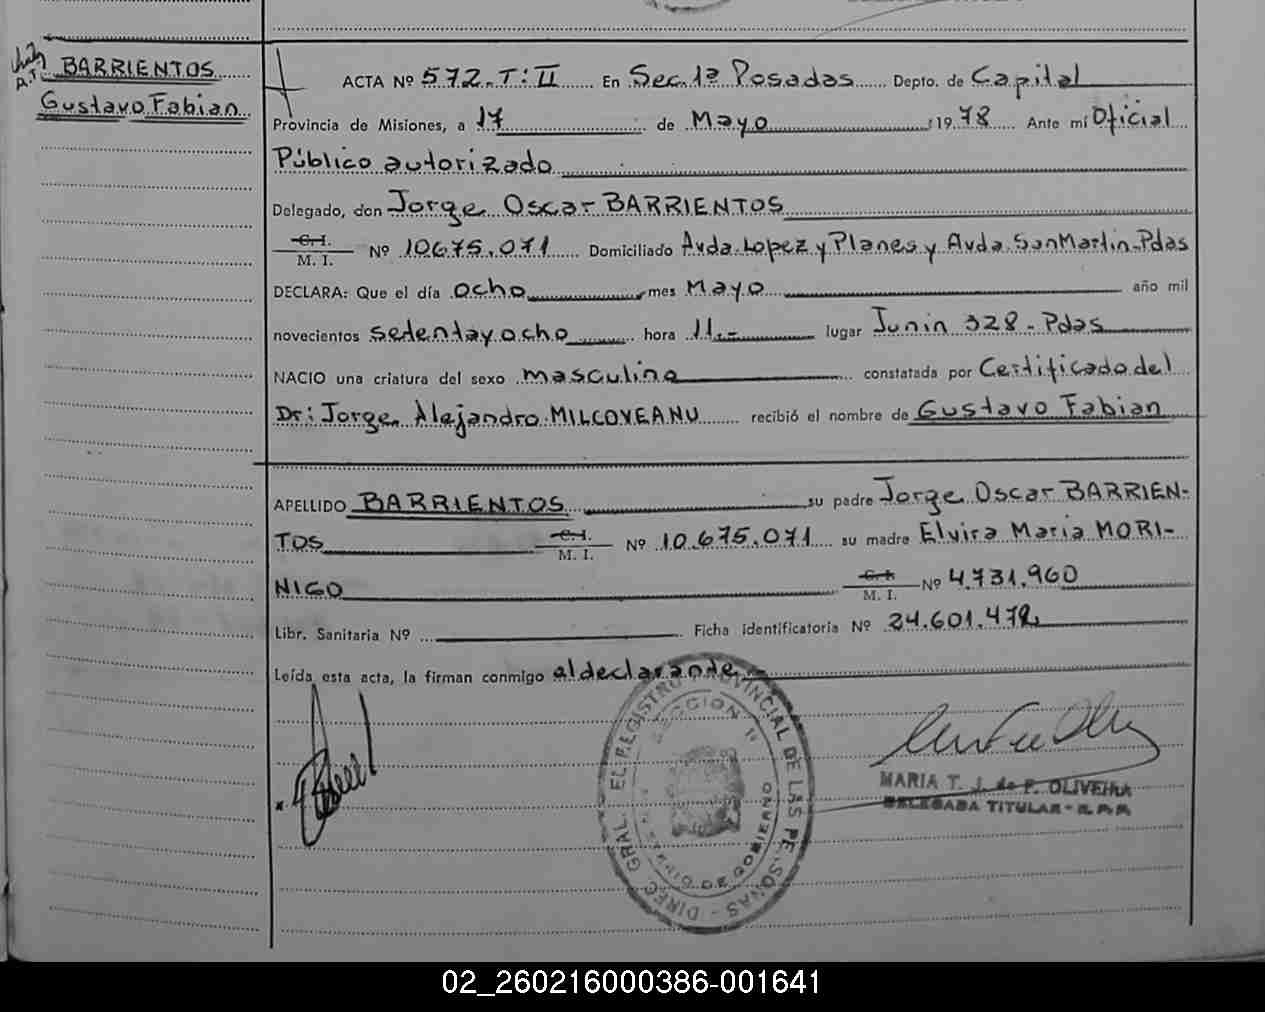 BARRIENTOS
Gustavo Fabian
ACTA Nº 572.T:II En Sec.1ª Posadas Depto. de Capital
Provincia de Misiones, a 17 de Mayo 1978 Ante mí Oficial
Público autorizado
Delegado, don Jorge Oscar BARRIENTOS
C.I.
M. I. Nº 10.675.071 Domiciliado Avda.Lopez y Planes y Avda.SanMartin-Pdas
DECLARA: Que el día ocho mes Mayo año mil
novecientos setentayocho hora 11.- lugar Junin 328-Pdas
NACIO una criatura del sexo masculino constatada por Certificado del
Dr: Jorge Alejandro MILCOVEANU recibió el nombre de Gustavo Fabian
APELLIDO BARRIENTOS su padre Jorge Oscar BARRIEN-
TOS C.I. M. I. Nº 10.675.071 su madre Elvira Maria MORI-
NIGO C.I. M. I. Nº 4.731.960
Libr. Sanitaria Nº Ficha identificatoria Nº 24.601.472
Leída esta acta, la firman conmigo el declarante
DIREC. GRAL. EL REGISTRO PROVINCIAL DE LAS PERSONAS
SECCION 1ª
DE GOBIERNO
MARIA T. J. de F. OLIVEIRA
DELEGADA TITULAR - R.P.P.
02_260216000386-001641